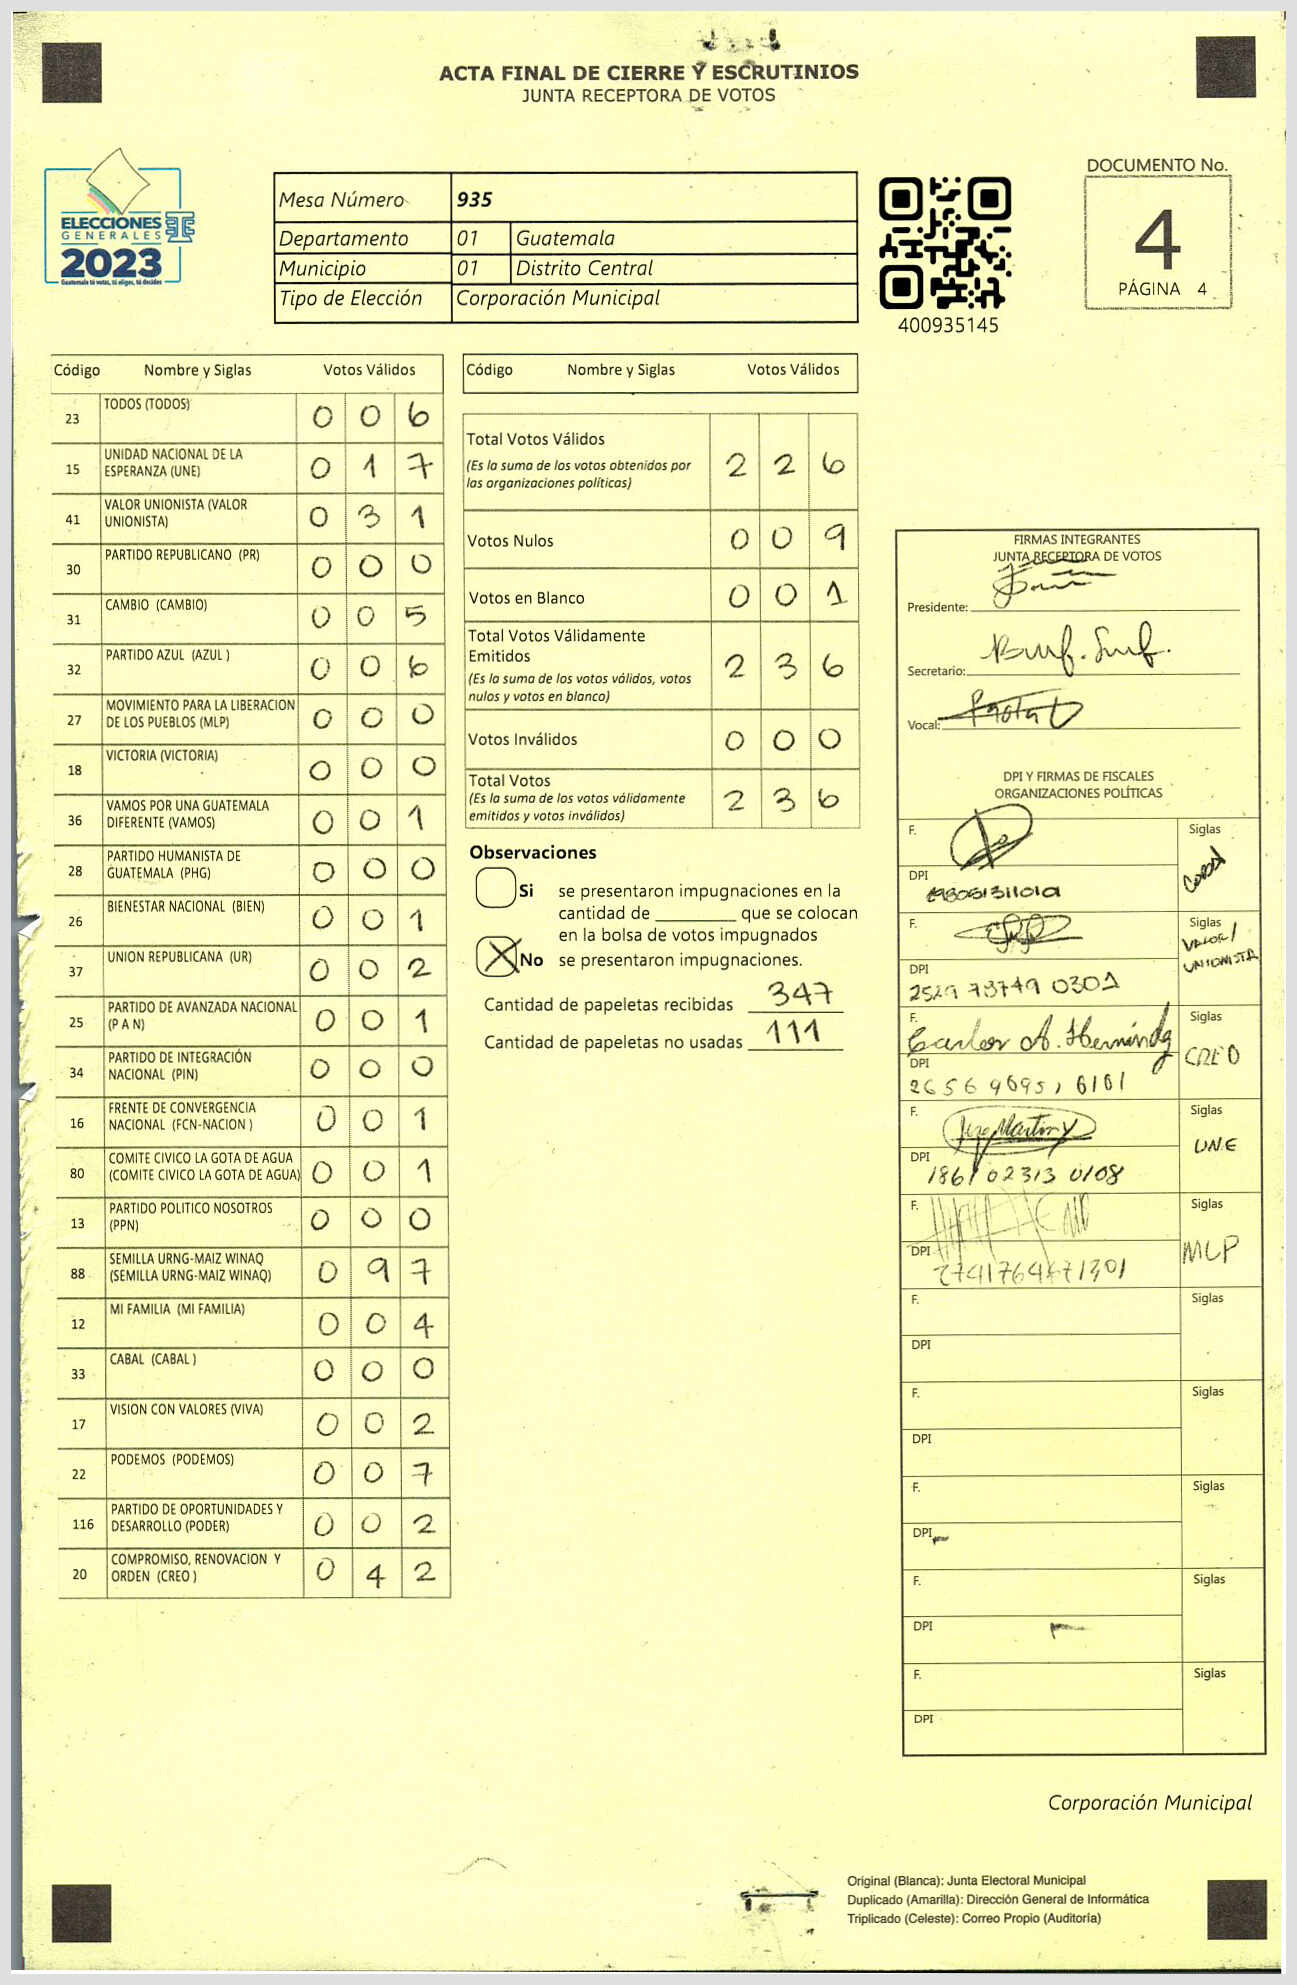 ACTA FINAL DE CIERRE Y ESCRUTINIOS
JUNTA RECEPTORA DE VOTOS
ELECCIONES
GENERALES
2023
Guatemala tú votas, tú eliges, tú decides
Mesa Número 935
Departamento 01 Guatemala
Municipio 01 Distrito Central
Tipo de Elección Corporación Municipal
400935145
DOCUMENTO No.
4
PÁGINA 4
Código Nombre y Siglas Votos Válidos
23 TODOS (TODOS) 0 0 6
15 UNIDAD NACIONAL DE LA
ESPERANZA (UNE) 0 1 7
41 VALOR UNIONISTA (VALOR
UNIONISTA) 0 3 1
30 PARTIDO REPUBLICANO (PR) 0 0 0
31 CAMBIO (CAMBIO) 0 0 5
32 PARTIDO AZUL (AZUL ) 0 0 6
27 MOVIMIENTO PARA LA LIBERACION
DE LOS PUEBLOS (MLP) 0 0 0
18 VICTORIA (VICTORIA) 0 0 0
36 VAMOS POR UNA GUATEMALA
DIFERENTE (VAMOS) 0 0 1
28 PARTIDO HUMANISTA DE
GUATEMALA (PHG) 0 0 0
26 BIENESTAR NACIONAL (BIEN) 0 0 1
37 UNION REPUBLICANA (UR) 0 0 2
25 PARTIDO DE AVANZADA NACIONAL
(P A N) 0 0 1
34 PARTIDO DE INTEGRACIÓN
NACIONAL (PIN) 0 0 0
16 FRENTE DE CONVERGENCIA
NACIONAL (FCN-NACION ) 0 0 1
80 COMITE CIVICO LA GOTA DE AGUA
(COMITE CIVICO LA GOTA DE AGUA) 0 0 1
13 PARTIDO POLITICO NOSOTROS
(PPN) 0 0 0
88 SEMILLA URNG-MAIZ WINAQ
(SEMILLA URNG-MAIZ WINAQ) 0 9 7
12 MI FAMILIA (MI FAMILIA) 0 0 4
33 CABAL (CABAL ) 0 0 0
17 VISION CON VALORES (VIVA) 0 0 2
22 PODEMOS (PODEMOS) 0 0 7
116 PARTIDO DE OPORTUNIDADES Y
DESARROLLO (PODER) 0 0 2
20 COMPROMISO, RENOVACION Y
ORDEN (CREO ) 0 4 2
Código Nombre y Siglas Votos Válidos
Total Votos Válidos
(Es la suma de los votos obtenidos por
las organizaciones políticas) 2 2 6
Votos Nulos 0 0 9
Votos en Blanco 0 0 1
Total Votos Válidamente
Emitidos
(Es la suma de los votos válidos, votos
nulos y votos en blanco) 2 3 6
Votos Inválidos 0 0 0
Total Votos
(Es la suma de los votos válidamente
emitidos y votos inválidos) 2 3 6
Observaciones
Si se presentaron impugnaciones en la
cantidad de ________ que se colocan
en la bolsa de votos impugnados
X No se presentaron impugnaciones.
Cantidad de papeletas recibidas 347
Cantidad de papeletas no usadas 111
FIRMAS INTEGRANTES
JUNTA RECEPTORA DE VOTOS
Presidente:
Secretario:
Vocal:
DPI Y FIRMAS DE FISCALES
ORGANIZACIONES POLÍTICAS
F. Siglas
DPI
F. Siglas
VALOR/
UNIONISTA
DPI
2529 73749 0301
F. Siglas
Carlos A. Hernández
CREO
DPI
F. Siglas
UNE
DPI
F. Siglas
MLP
DPI
F. Siglas
DPI
F. Siglas
DPI
F. Siglas
DPI
F. Siglas
DPI
F. Siglas
DPI
Corporación Municipal
Original (Blanca): Junta Electoral Municipal
Duplicado (Amarilla): Dirección General de Informática
Triplicado (Celeste): Correo Propio (Auditoría)